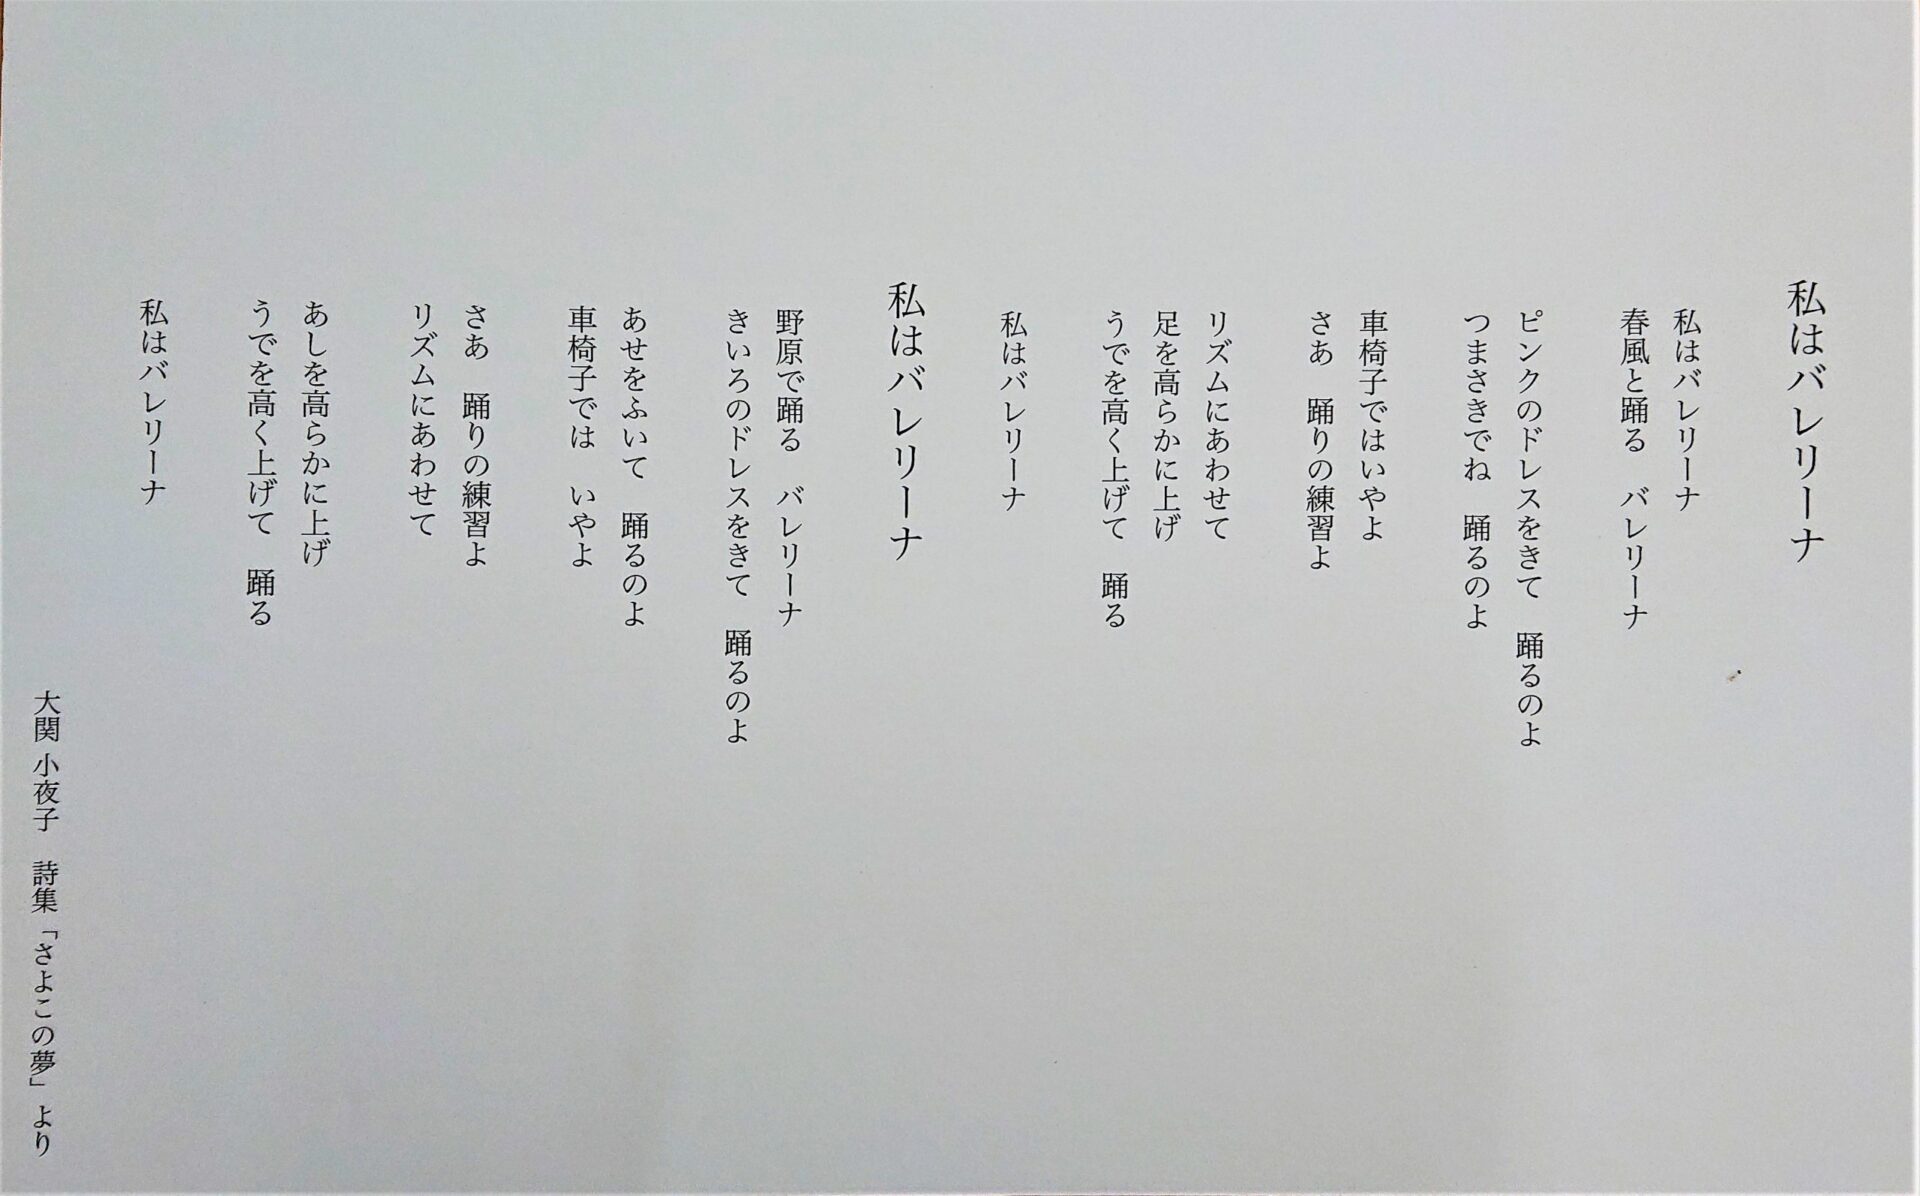 私はバレリーナ
私はバレリーナ
春風と踊る　バレリーナ
ピンクのドレスをきて　踊るのよ
つまさきでね　踊るのよ
車椅子ではいやよ
さあ　踊りの練習よ
リズムにあわせて
足を高らかに上げ
うでを高く上げて　踊る
私はバレリーナ
私はバレリーナ
野原で踊る　バレリーナ
きいろのドレスをきて　踊るのよ
あせをふいて　踊るのよ
車椅子では　いやよ
さあ　踊りの練習よ
リズムにあわせて
あしを高らかに上げ
うでを高く上げて　踊る
私はバレリーナ
大関 小夜子　詩集「さよこの夢」より